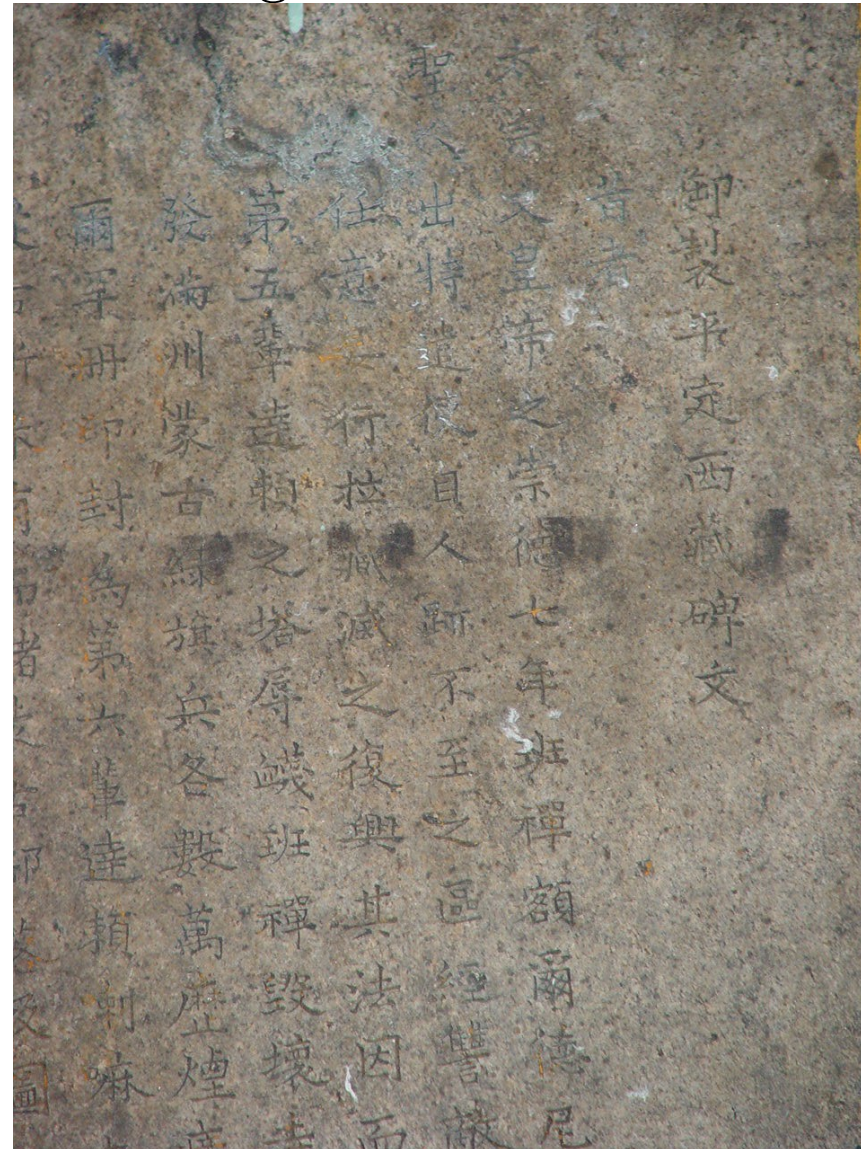 御製平定西藏碑文
昔者
太宗文皇帝之崇德七年班禪額爾德尼
聖人出特遣使自人跡不至之區經讐敵
任意之行拉藏滅之復興其法因而
第五輩達賴之塔辱衊班禪毀壞寺
發滿州蒙古綠旗兵各數萬歷煙瘴
爾罕冊印封為第六輩達賴喇嘛
諸
部落及圖